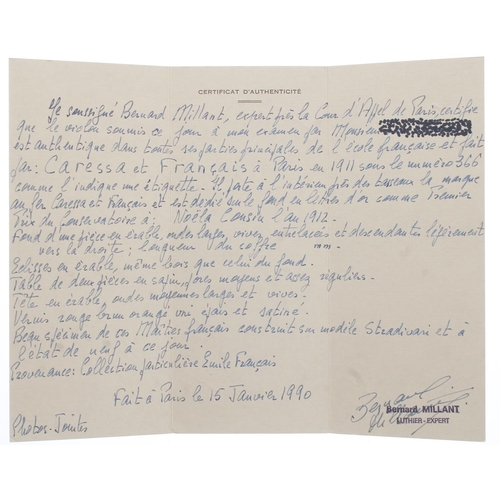 CERTIFICAT D'AUTHENTICITÉ
Je soussigné Bernard Millant, expert près la Cour d'Appel de Paris, certifie
que le violon soumis ce jour à mon examen par Monsieur
est authentique dans toutes ses parties principales de l'école française et fait
par: Caressa et Français à Paris en 1911 sous le numéro 366
comme l'indique une étiquette. Il porte à l'intérieur près des tasseaux la marque
au fer Caressa et Français et est dédié sur le fond en lettres d'or comme Premier
Prix du Conservatoire à: Noëla Cousin l'an 1912.
Fond d'une pièce en érable, ondes larges, vives, entrelacées et descendantes légèrement
vers la droite; longueur du coffre mm.
Eclisses en érable, même bois que celui du fond.
Table de deux pièces en sapin, pores moyens et assez réguliers.
Tête en érable, ondes moyennes larges et vives.
Vernis rouge brun orangé uni épais et satiné.
Beau spécimen de ces Maîtres français construit sur modèle Stradivari et à
l'état de neuf à ce jour.
Provenance: Collection particulière Emile Français
Fait à Paris le 15 Janvier 1990
Bernard MILLANT
LUTHIER - EXPERT
Photos-Jointes